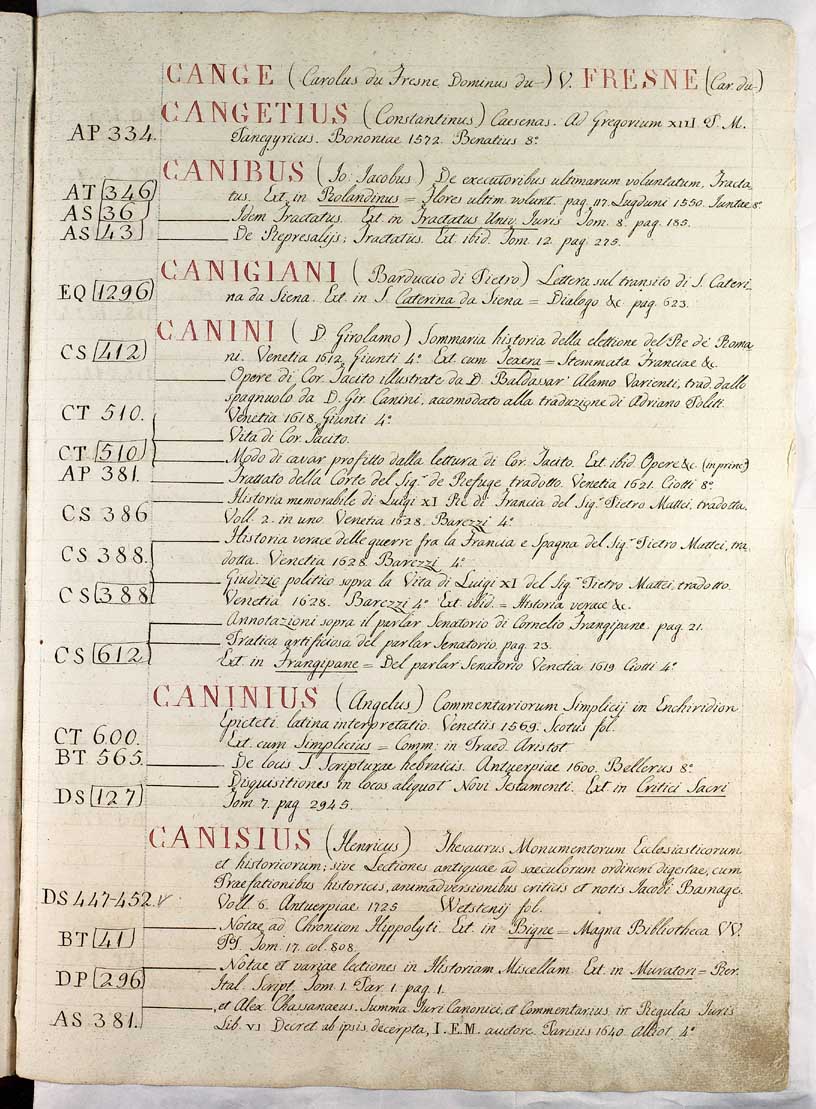 CANGE (Carolus du Fresne Dominus du-) V. FRESNE (Car. du-)
CANGETIUS (Constantinus) Caesenas. Ad Gregorium XIII P. M.
AP 334. Panegyricus. Bononiae 1572. Benatius 8°.
CANIBUS (Jo: Jacobus) De executoribus ultimarum voluntatum, Tracta
AT 346 tus. Ext. in Rolandinus = Flores ultim. volunt. pag. 117. Lugduni 1550. Juntae 8°.
AS 36 Idem Tractatus. Ext. in Tractatus Univ. Iuris Tom. 8. pag. 185.
AS 43 De Represalijs; Tractatus. Ext. ibid. Tom. 12. pag. 275.
CANIGIANI (Barduccio di Pietro) Lettera sul transito di S. Cateri-
EQ 1296 na da Siena. Ext. in S. Caterina da Siena = Dialogo &c. pag. 623.
CANINI (D. Girolamo) Sommaria historia della elettione del Re de' Roma-
CS 412 ni. Venetia 1612. Giunti 4°. Ext. cum Texera = Stemmata Franciae &c.
Opere di Cor. Tacito illustrate da D. Baldassar' Alamo Varienti, trad. dallo
spagnuolo da D. Gir. Canini, accomodato alla traduzione di Adriano Politi.
CT 510. Venetia 1618. Giunti 4°.
Vita di Cor. Tacito.
CT 510 Modo di cavar profitto dalla lettura di Cor. Tacito. Ext. ibid. Opere &c. (in princ.)
AP 381. Trattato della Corte del Sig.r de Refuge tradotto. Venetia 1621. Ciotti 8°.
Historia memorabile di Luigi XI Re di Francia del Sig.r Pietro Mattei, tradotta.
CS 386 Voll. 2. in uno. Venetia 1628. Barezzi 4°.
Historia verace delle guerre fra la Francia e Spagna del Sig.r Pietro Mattei, tra-
CS 388. dotta. Venetia 1628. Barezzi 4°.
Giudizio politico sopra la Vita di Luigi XI del Sig.r Pietro Mattei, tradotto.
CS 388 Venetia 1628. Barezzi 4°. Ext. ibid. = Historia verace &c.
Annotazioni sopra il parlar Senatorio di Cornelio Frangipane. pag. 21.
Pratica artifiziosa del parlar Senatorio pag. 23.
CS 612 Ext in Frangipane = Del parlar Senatorio Venetia 1619 Ciotti 4°.
CANINIUS (Angelus) Commentariorum Simplicij in Enchiridion
Epicteti latina interpretatio. Venetiis 1569. Scotus fol.
CT 600. Ext. cum Simplicius = Comm: in Praed. Aristot.
BT 565. De locis S. Scripturae hebraicis. Antuerpiae 1600. Bellerus 8°.
Disquisitiones in locos aliquot Novi Testamenti. Ext in Critici Sacri
DS 127 Tom. 7. pag. 2945.
CANISIUS (Henricus) Thesaurus Monumentorum Ecclesiasticorum
et historicorum; sive Lectiones antiquae ad saeculorum ordinem digestae, cum
Praefationibus historicis, animadversionibus criticis et notis Jacobi Basnage.
DS 447-452. v Voll. 6. Antuerpiae 1725 Wetstenij fol.
Notae ad Chronicon Hippolyti. Ext. in Bigne = Magna Bibliotheca VV.
BT 41 PP. Tom. 17. col. 808.
Notae et variae lectiones in Historiam Miscellam. Ext. in Muratori = Rer.
DP 296 Ital. Script. Tom. 1. Par. 1. pag. 1.
et Alex. Chassanaeus. Summa Juri Canonici, et Commentarius in Regulas Iuris
AS 381. Lib. VI Decret ab ipsis decerpta, I. E. M. auctore. Parisiis 1640. Alliot 4°.